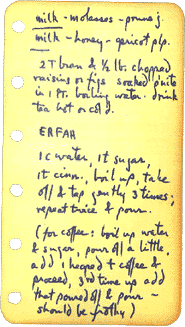 milk - molasses - prune j.
milk - honey - apricot plp.
2 T bran & ½ lb. chopped
raisins or figs soaked o'nite
in 1 pt. boiling water. drink
tea hot or cold.
ERFAH
1 c water, 1t sugar,
1t cinn., boil up, take
off & tap gently 3 times;
repeat twice & pour.
(for coffee: boil up water
& sugar, pour off a little,
add 1 heaped t coffee &
proceed, 3rd time up add
that poured off & pour -
should be frothy)